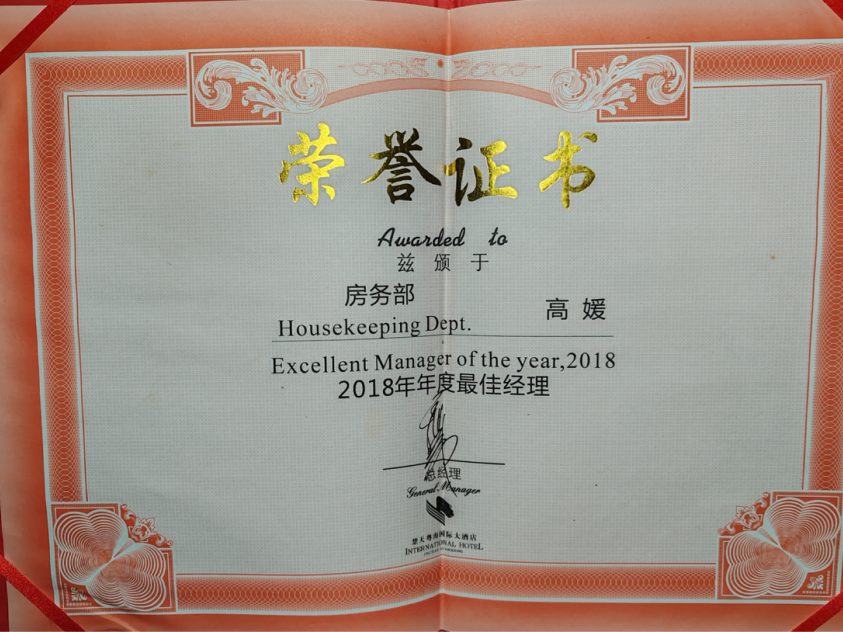 荣誉证书
Awarded to
兹颁于
房务部 高媛
Housekeeping Dept.
Excellent Manager of the year,2018
2018年年度最佳经理
总经理
General Manager
楚天粤海国际大酒店
INTERNATIONAL HOTEL